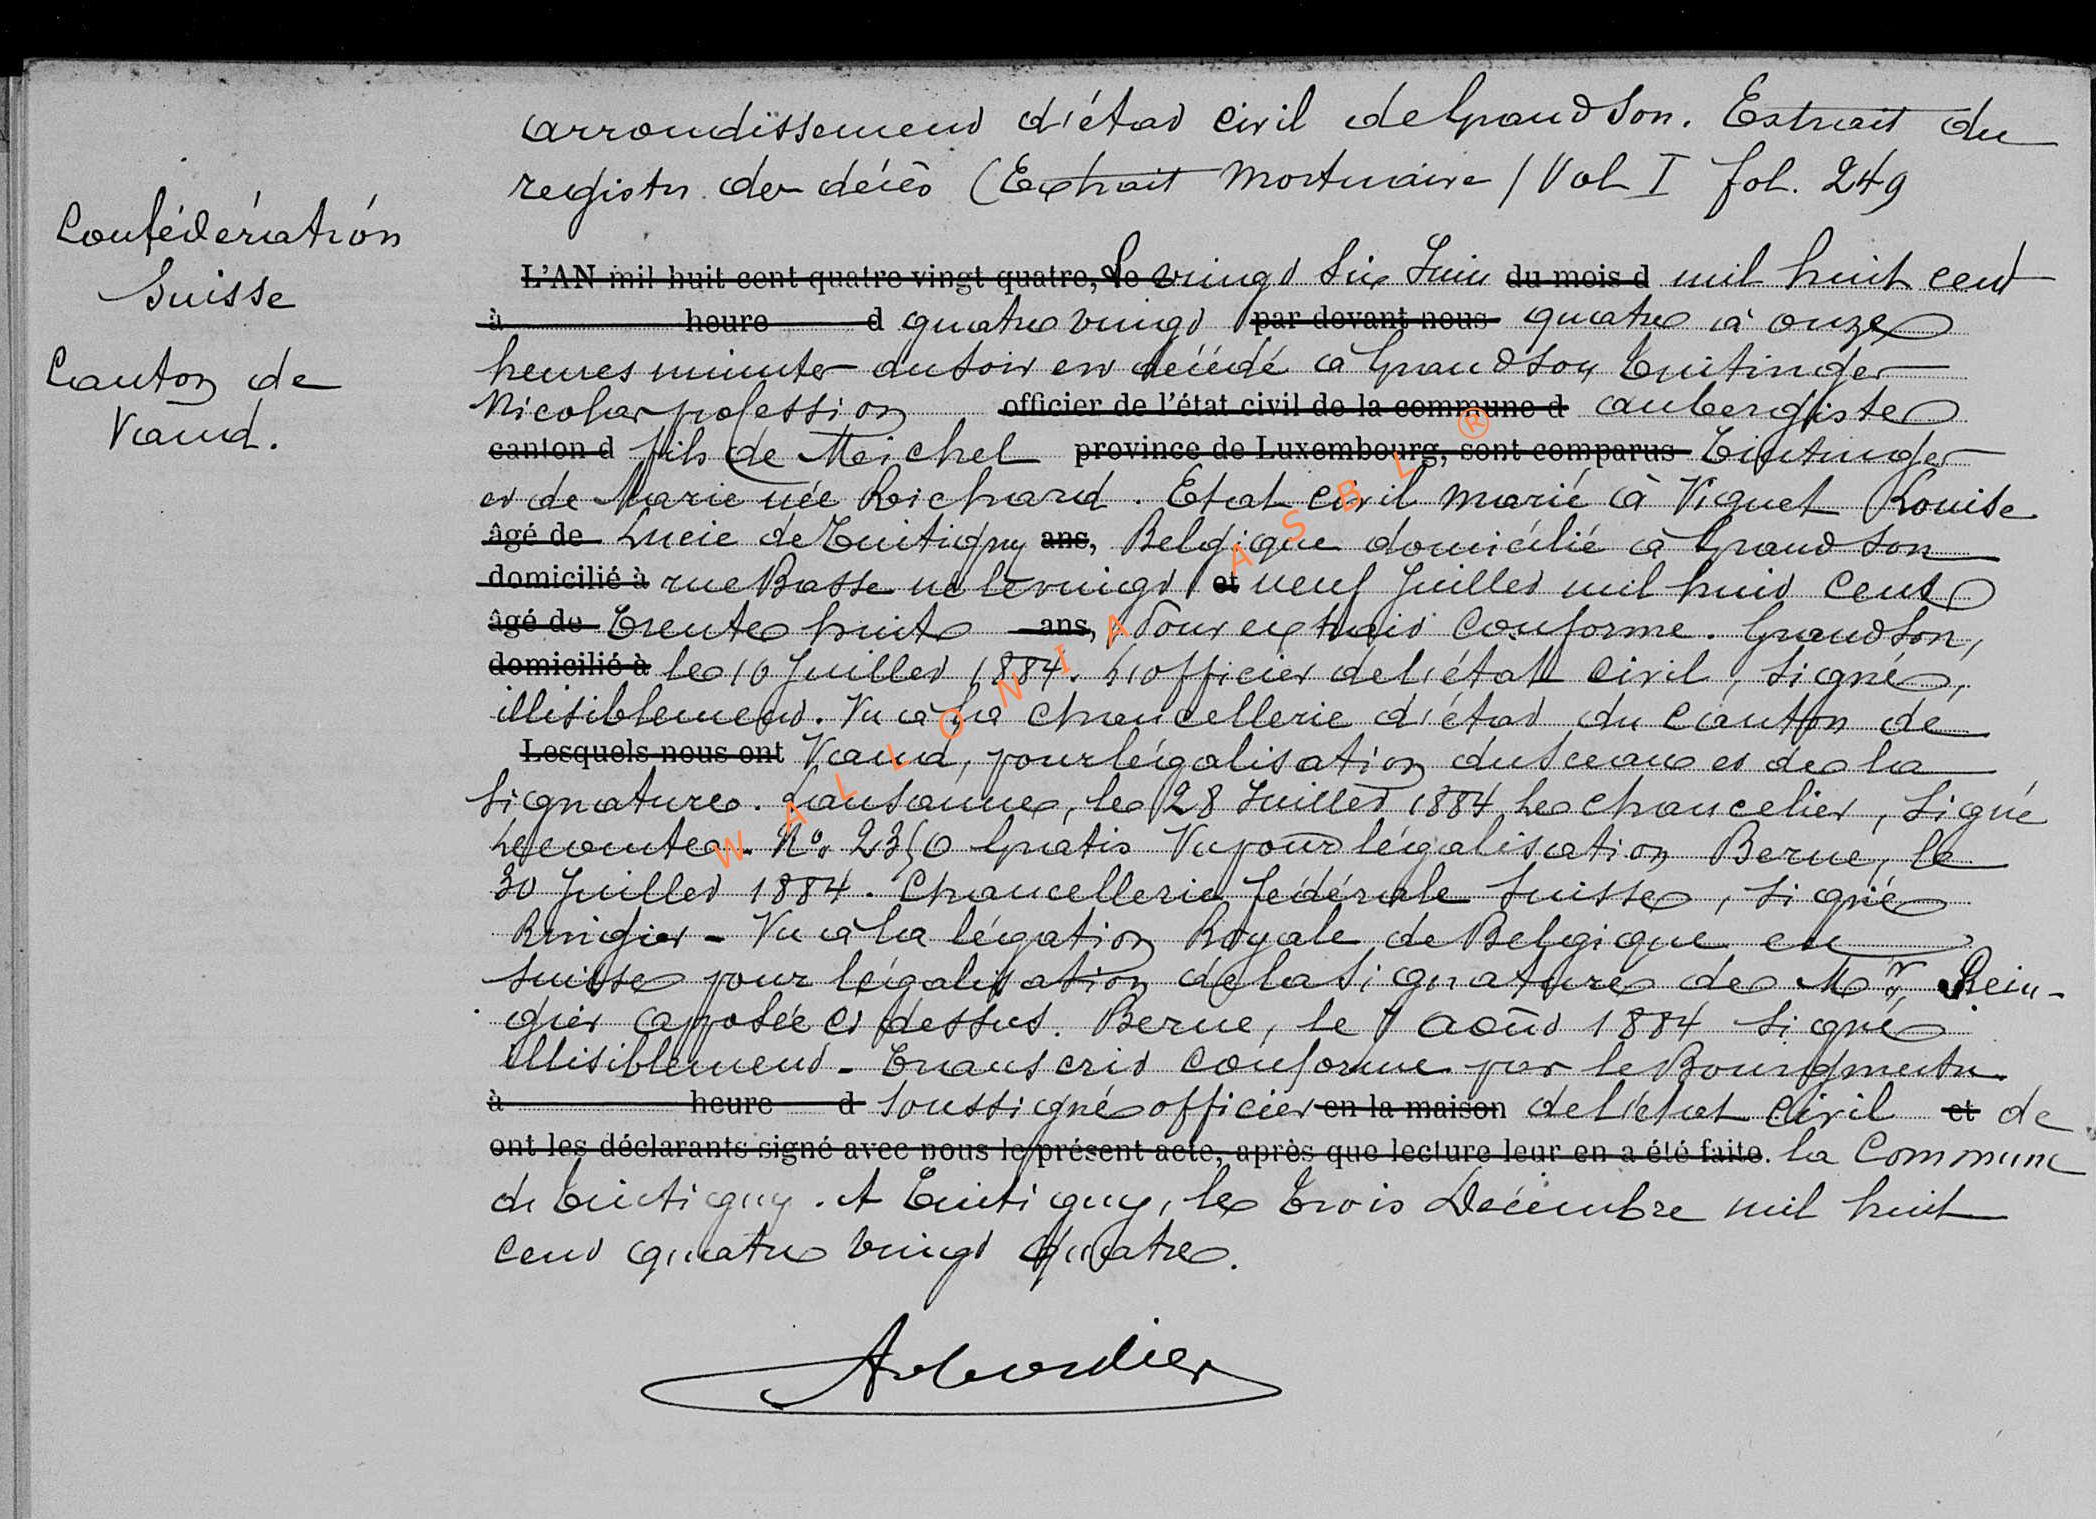 arrondissement d'état civil de Grandson. Extrait du
registre des décès (Extrait mortuaire / Vol I fol. 249
Confédération
Suisse
Canton de
Vaud.
L'AN mil huit cent quatre vingt quatre, Le vingt six Juin du mois d mil huit cent
à heure d quatre vingt par devant nous quatre à onze
heures minutes du soir est décédé à Grandson Tintinger
Nicolas profession officier de l'état civil de la commune d aubergiste
canton d fils de Meichel province de Luxembourg, sont comparus Tintinger
et de Marie née Reichard. Etat civil marié à Viquet Louise
âgé de Lucie de Tintigny ans, Belgique domicilié à Grandson
domicilié à rue Basse né le vingt et neuf Juillet mil huit cent
âgé de trente huit ans, Pour extrait conforme. Grandson,
domicilié à le 10 Juillet 1884. L'officier de l'état civil, signé,
illisiblement. Vu à la chancellerie d'état du canton de
Lesquels nous ont Vaud, pour légalisation du sceau et de la
signature. Lausanne, le 28 Juillet 1884 Le chancelier, signé
Lecomte. No 2350 Gratis Vu pour légalisation Berne, le
30 Juillet 1884. Chancellerie fédérale suisse, signé
Ringier - Vu à la légation Royale de Belgique en
suisse pour légalisation de la signature de Mr, Rein-
gier apposée ci dessus. Berne, le 1 août 1884 signé
illisiblement - Transcrit conforme par le Bourgmestre
à heure d soussigné officier en la maison de l'état civil et de
ont les déclarants signé avec nous le présent acte, après que lecture leur en a été faite. la Commune
de Tintigny. A Tintigny, le trois Décembre mil huit
cent quatre vingt quatre.
WALLONIA ASBL ®